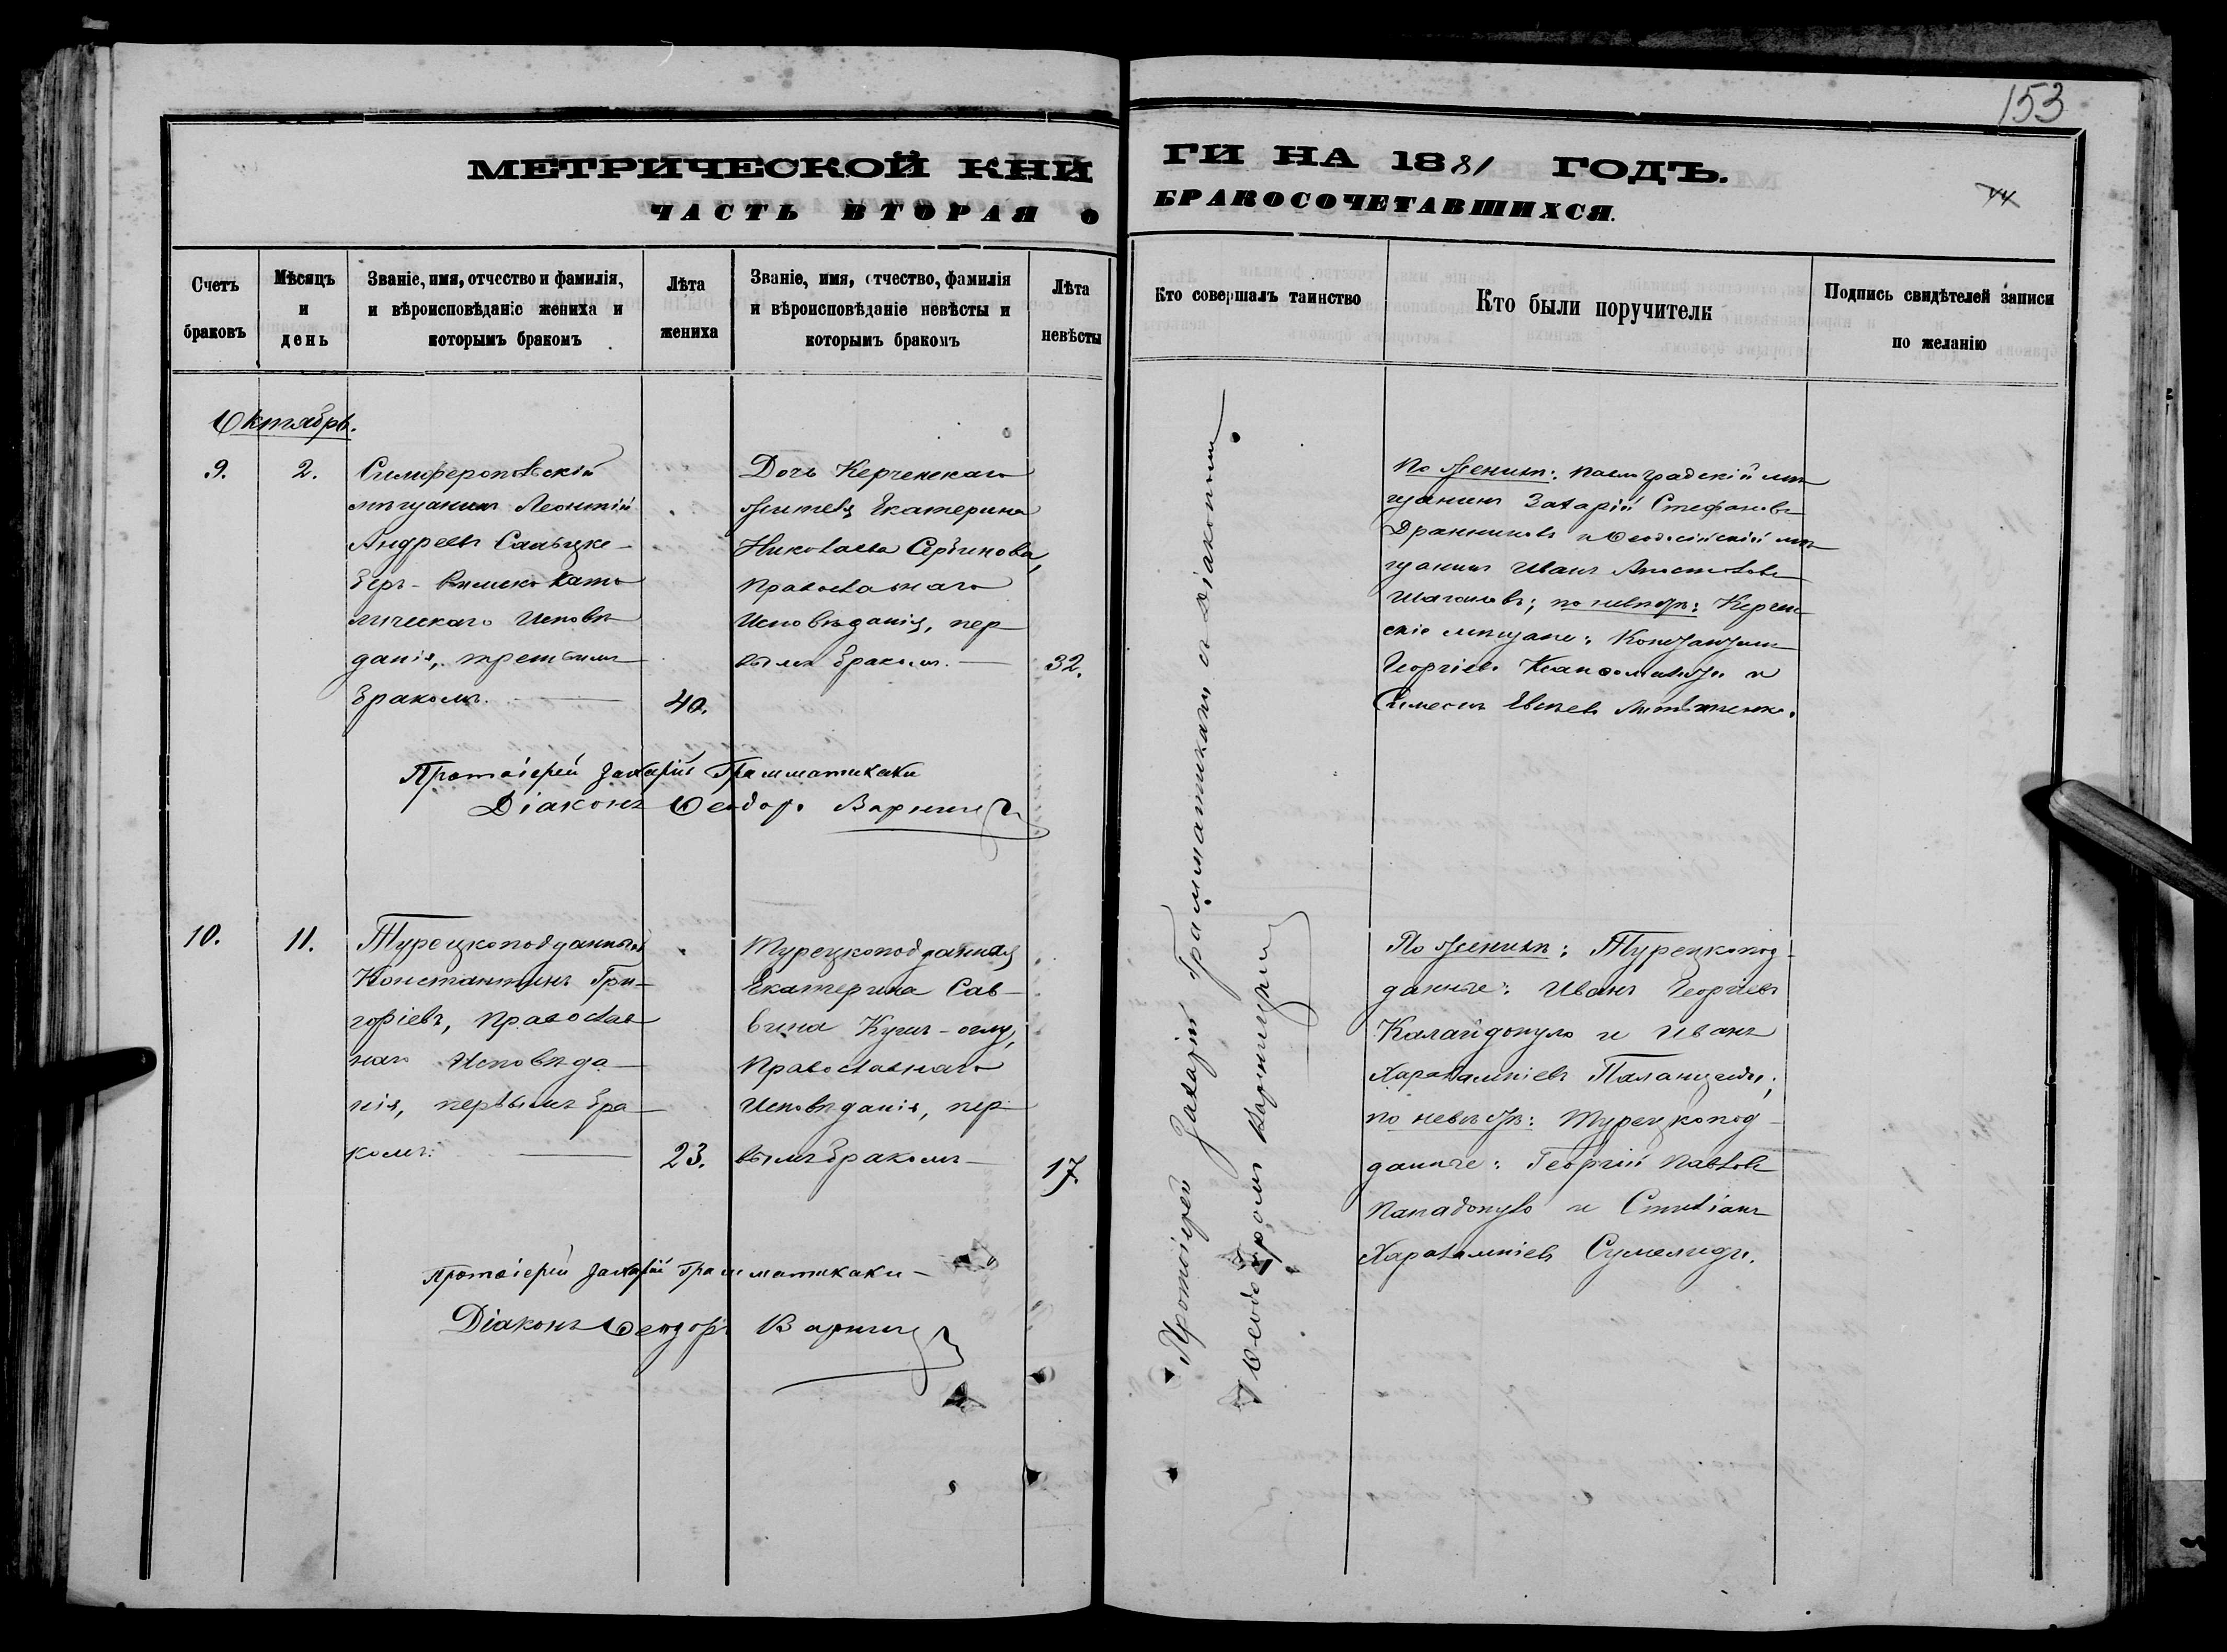 153
МЕТРИЧЕСКОЙ КНИ
ГИ НА 1881 ГОДЪ.
ЧАСТЬ ВТОРАЯ о
БРАКОСОЧЕТАВШИХСЯ.
Счетъ браковъ
Мѣсяцъ и день
Званіе, имя, отчество и фамилія,
и вѣроисповѣданіе жениха и
которымъ бракомъ
Лѣта
жениха
Званіе, имя, отчество, фамилія
и вѣроисповѣданіе невѣсты и
которымъ бракомъ
Лѣта
невѣсты
Кто совершалъ таинство
Кто были поручители
Подпись свидѣтелей записи
по желанію
Октябрь.
9.
2.
Симферопольскій
мѣщанинъ Леонтій
Андреевъ
беръ - Римско Като
лическаго Исповѣ
данія, третьимъ
бракомъ.
40.
Дочь Керченскаго
жителя Екатерина
Николаева
Православнаго
Исповѣданія, пер
вымъ бракомъ.
32.
По женихѣ: Павлоградскій мѣ
щанинъ Захарій Стефановъ
и Ѳеодосійскій мѣ
щанинъ Иванъ
по невѣстѣ: Керчен
скіе мѣщане: Константинъ
Георгіевъ и
Симеонъ
Протоіерей Захарій Грамматикаки
Діаконъ Ѳеодоръ
10.
11.
Турецкоподданный
Константинъ Гри
горіевъ, Православ
наго Исповѣда
нія, первымъ бра
комъ.
23.
Турецкоподданная
Екатерина Сав
вина оглу,
Православнаго
Исповѣданія, пер
вымъ бракомъ
17.
По женихѣ: Турецкопод
данные: Иванъ Георгіевъ
Калайдопуло и Иванъ
Харалампіевъ
по невѣстѣ: Турецкопод
данные: Георгій Павловъ
Пападопуло и Стиліанъ
Харалампіевъ
Протоіерей Захарій Грамматикаки
Діаконъ Ѳеодоръ
Протоіерей Захарій Грамматикаки съ діакономъ
Ѳеодоромъ